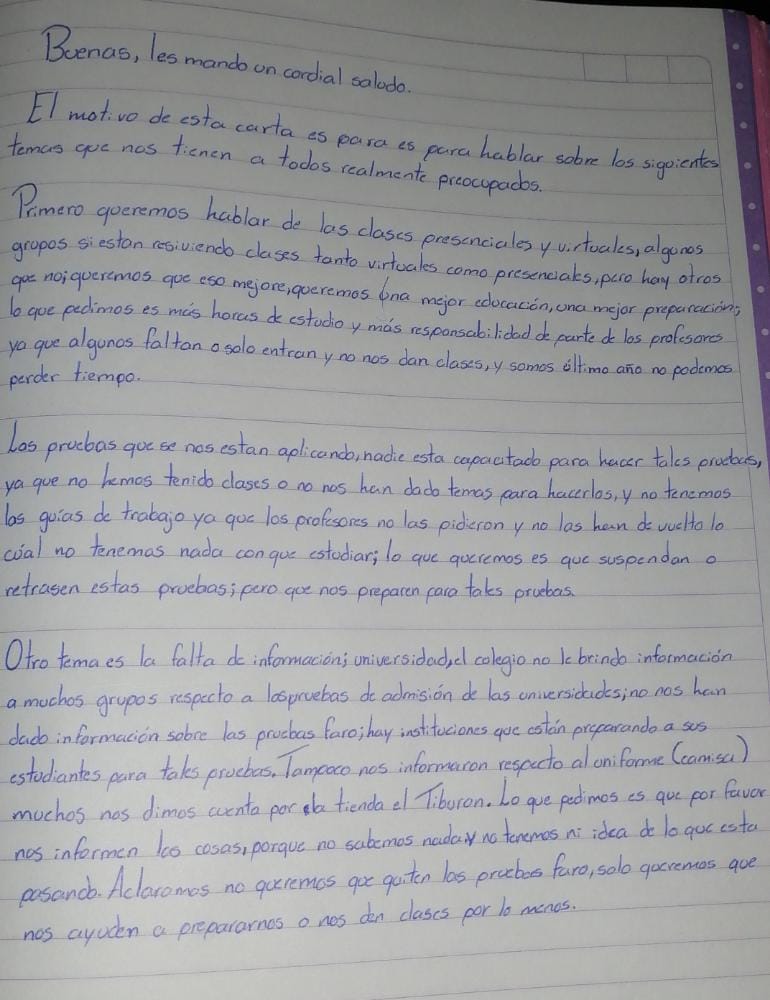 Buenas, les mando un cordial saludo.
El motivo de esta carta es para es para hablar sobre los siguientes
temas que nos tienen a todos realmente preocupados.
Primero queremos hablar de las clases presenciales y virtuales, algunos
grupos si estan resiviendo clases tanto virtuales como presenciales, pero hay otros
que no; queremos que eso mejore, queremos una mejor educación, una mejor preparación;
lo que pedimos es más horas de estudio y más responsabilidad de parte de los profesores
ya que algunos faltan o solo entran y no nos dan clases, y somos último año no podemos
perder tiempo.
Las pruebas que se nos estan aplicando, nadie esta capacitado para hacer tales pruebas,
ya que no hemos tenido clases o no nos han dado temas para hacerlos, y no tenemos
las guías de trabajo ya que los profesores no las pidieron y no las han de vuelto lo
cúal no tenemos nada con que estudiar; lo que queremos es que suspendan o
retrasen estas pruebas; pero que nos preparen para tales pruebas.
Otro tema es la falta de información; universidad, el colegio no le brindo información
a muchos grupos respecto a las pruebas de admisión de las universidades; no nos han
dado información sobre las pruebas faro; hay instituciones que están preparando a sus
estudiantes para tales pruebas. Tampoco nos informaron respecto al uniforme (camisa)
muchos nos dimos cuenta por la tienda el Tiburon. Lo que pedimos es que por favor
nos informen las cosas, porque no sabemos nada y no tenemos ni idea de lo que esta
pasando. Aclaramos no queremos que quiten las pruebas faro, solo queremos que
nos ayuden a prepararnos o nos den clases por lo menos.